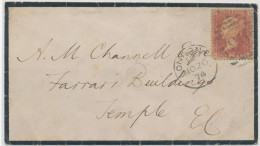 A. M. Channell Esqre
Farrar's Buildings
Temple
EC
LONDON
NO 20
74